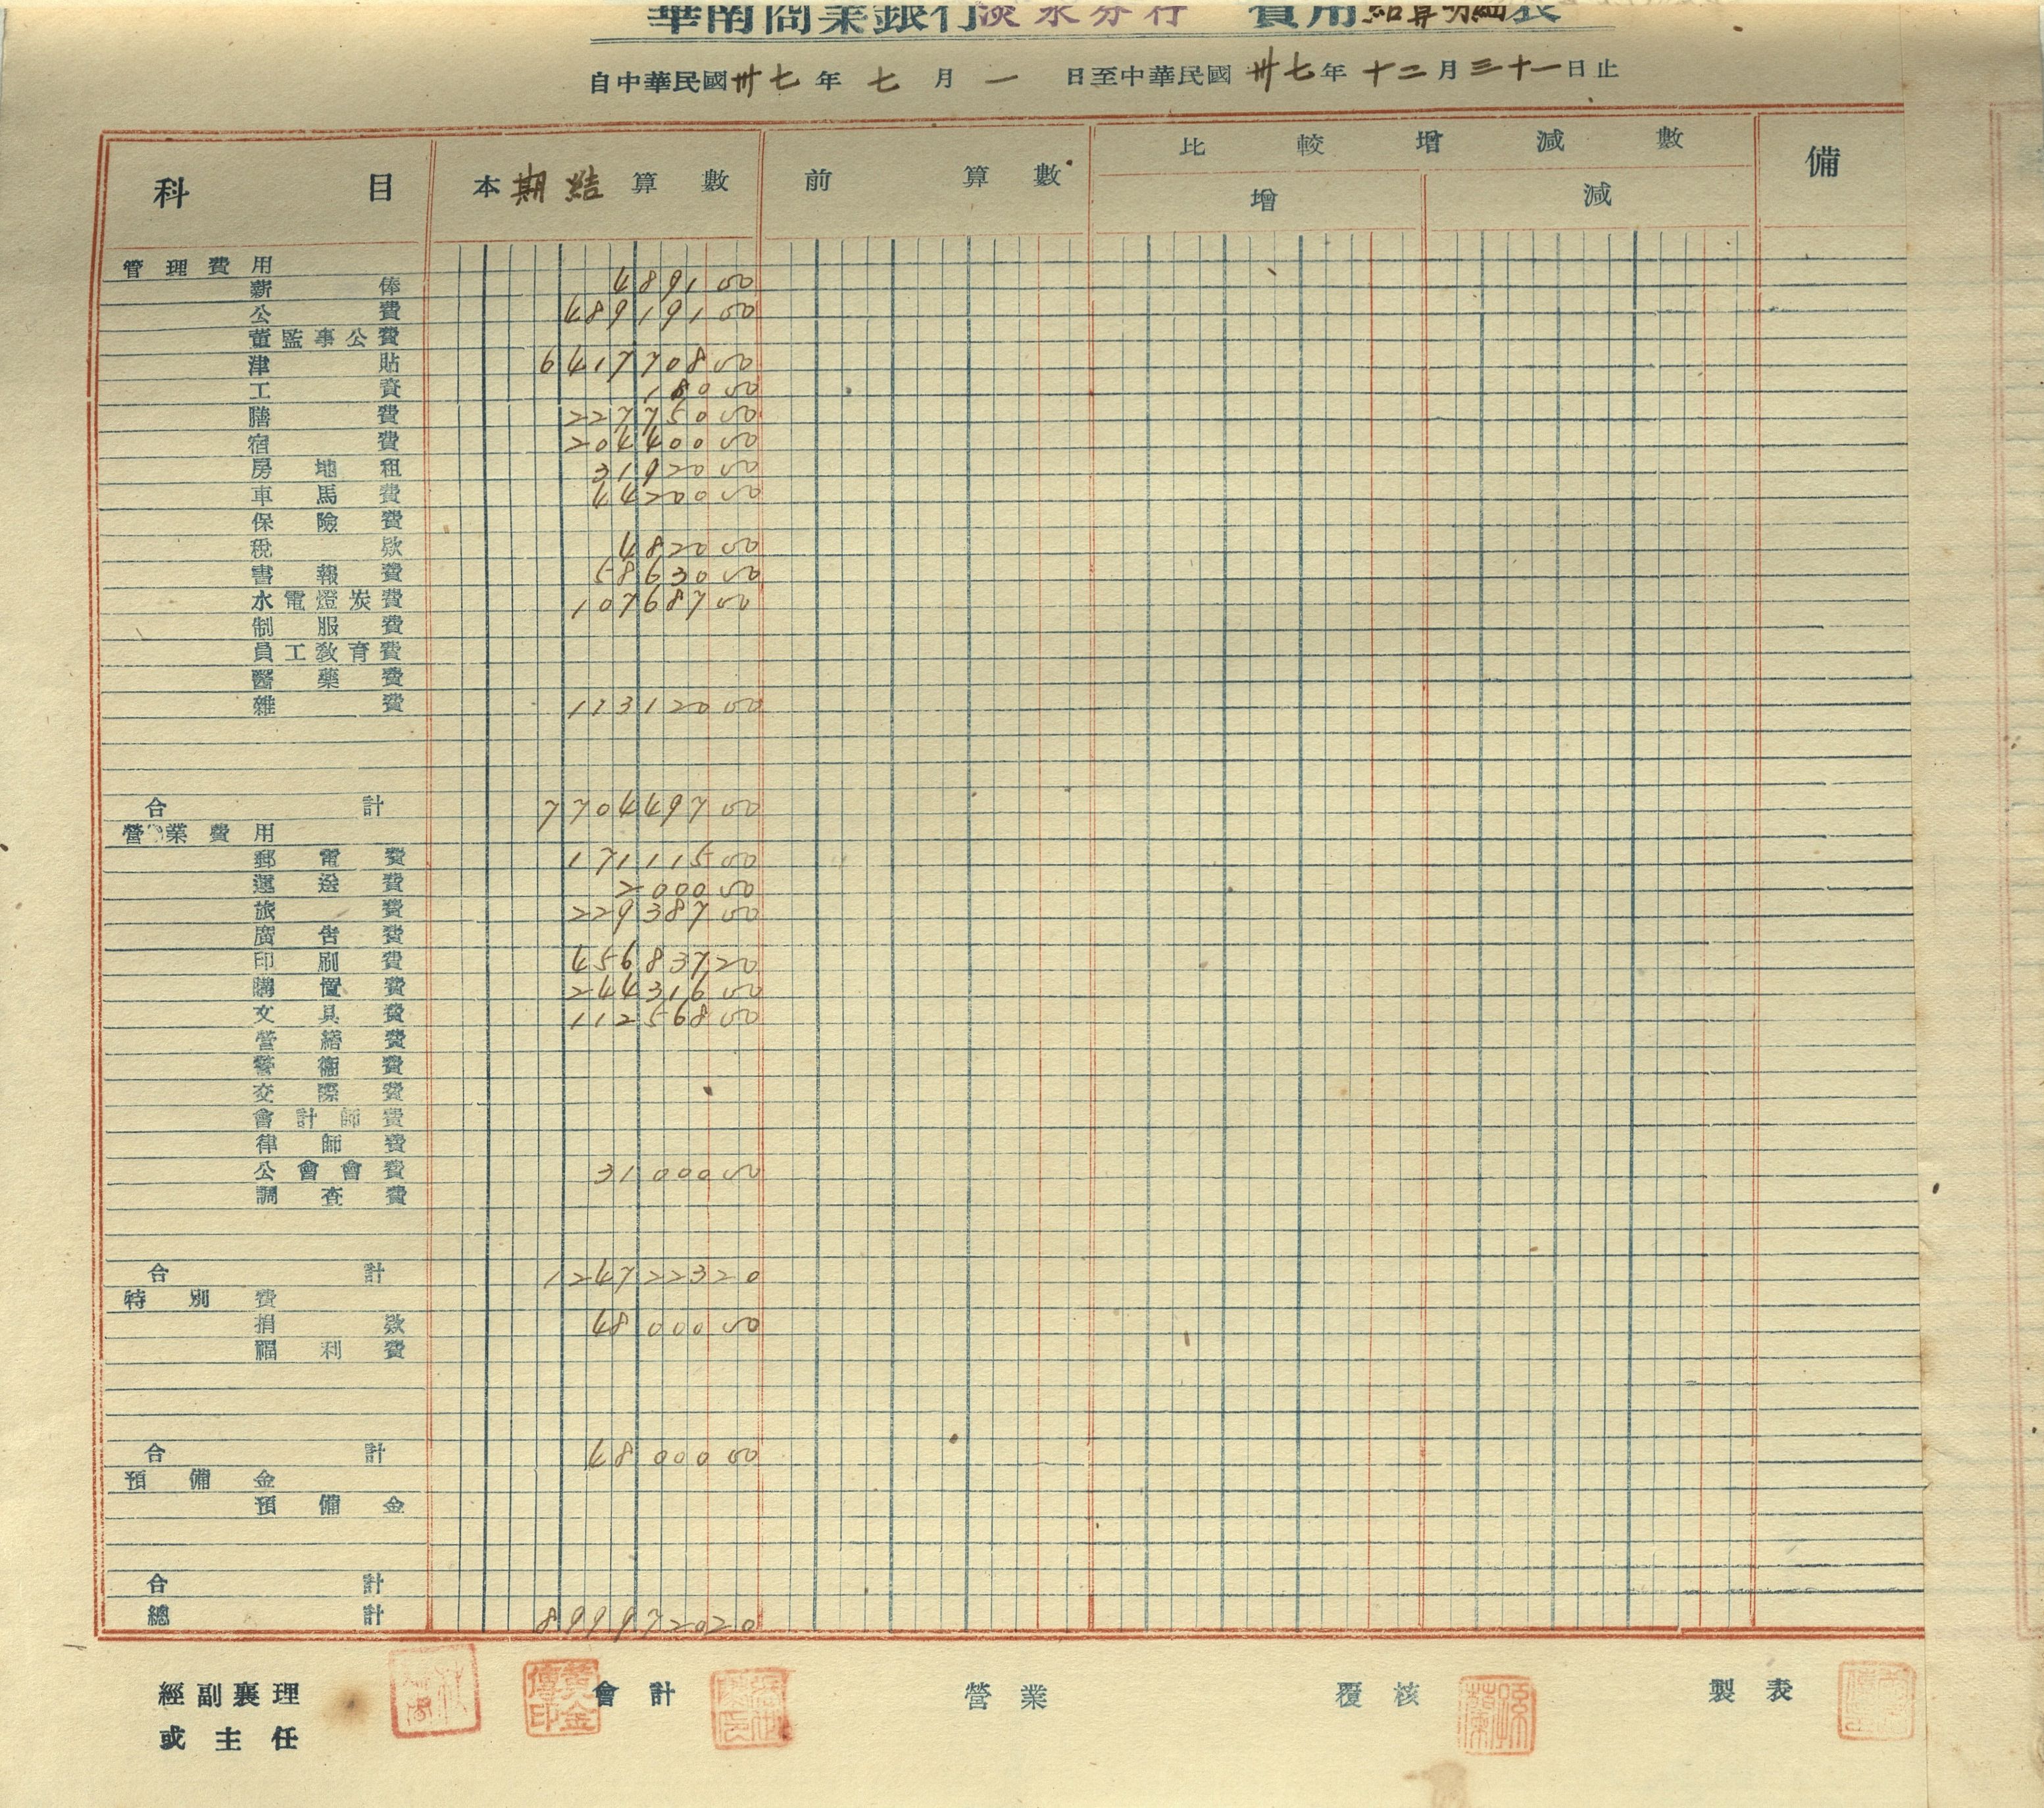 華南商業銀行淡水分行 費用結算明細表
自中華民國卅七年七月一日至中華民國卅七年十二月三十一日止
科目 本期結算數 前算數 比較增減數 備
增 減
管理費用
薪俸 4891 00
公費 489191 00
董監事公費
津貼 6417708 00
工資 180 00
膳費 227750 00
宿費 204400 00
房地租 31920 00
車馬費 44200 00
保險費
稅款 4820 00
書報費 58630 00
水電燈炭費 107687 00
制服費
員工教育費
醫藥費
雜費 113120 00
合計 7704497 00
營業費用
郵電費 171115 00
運送費 2000 00
旅費 229387 00
廣告費
印刷費 456837 20
購置費 244316 00
文具費 112568 00
營繕費
警衛費
交際費
會計師費
律師費
公會會費 31000 00
調查費
合計 1247223 20
特別費
捐款 48000 00
福利費
合計 48000 00
預備金
預備金
合計
總計 8999720 20
經副襄理 會計 營業 覆核 製表
或主任
黃金傳印